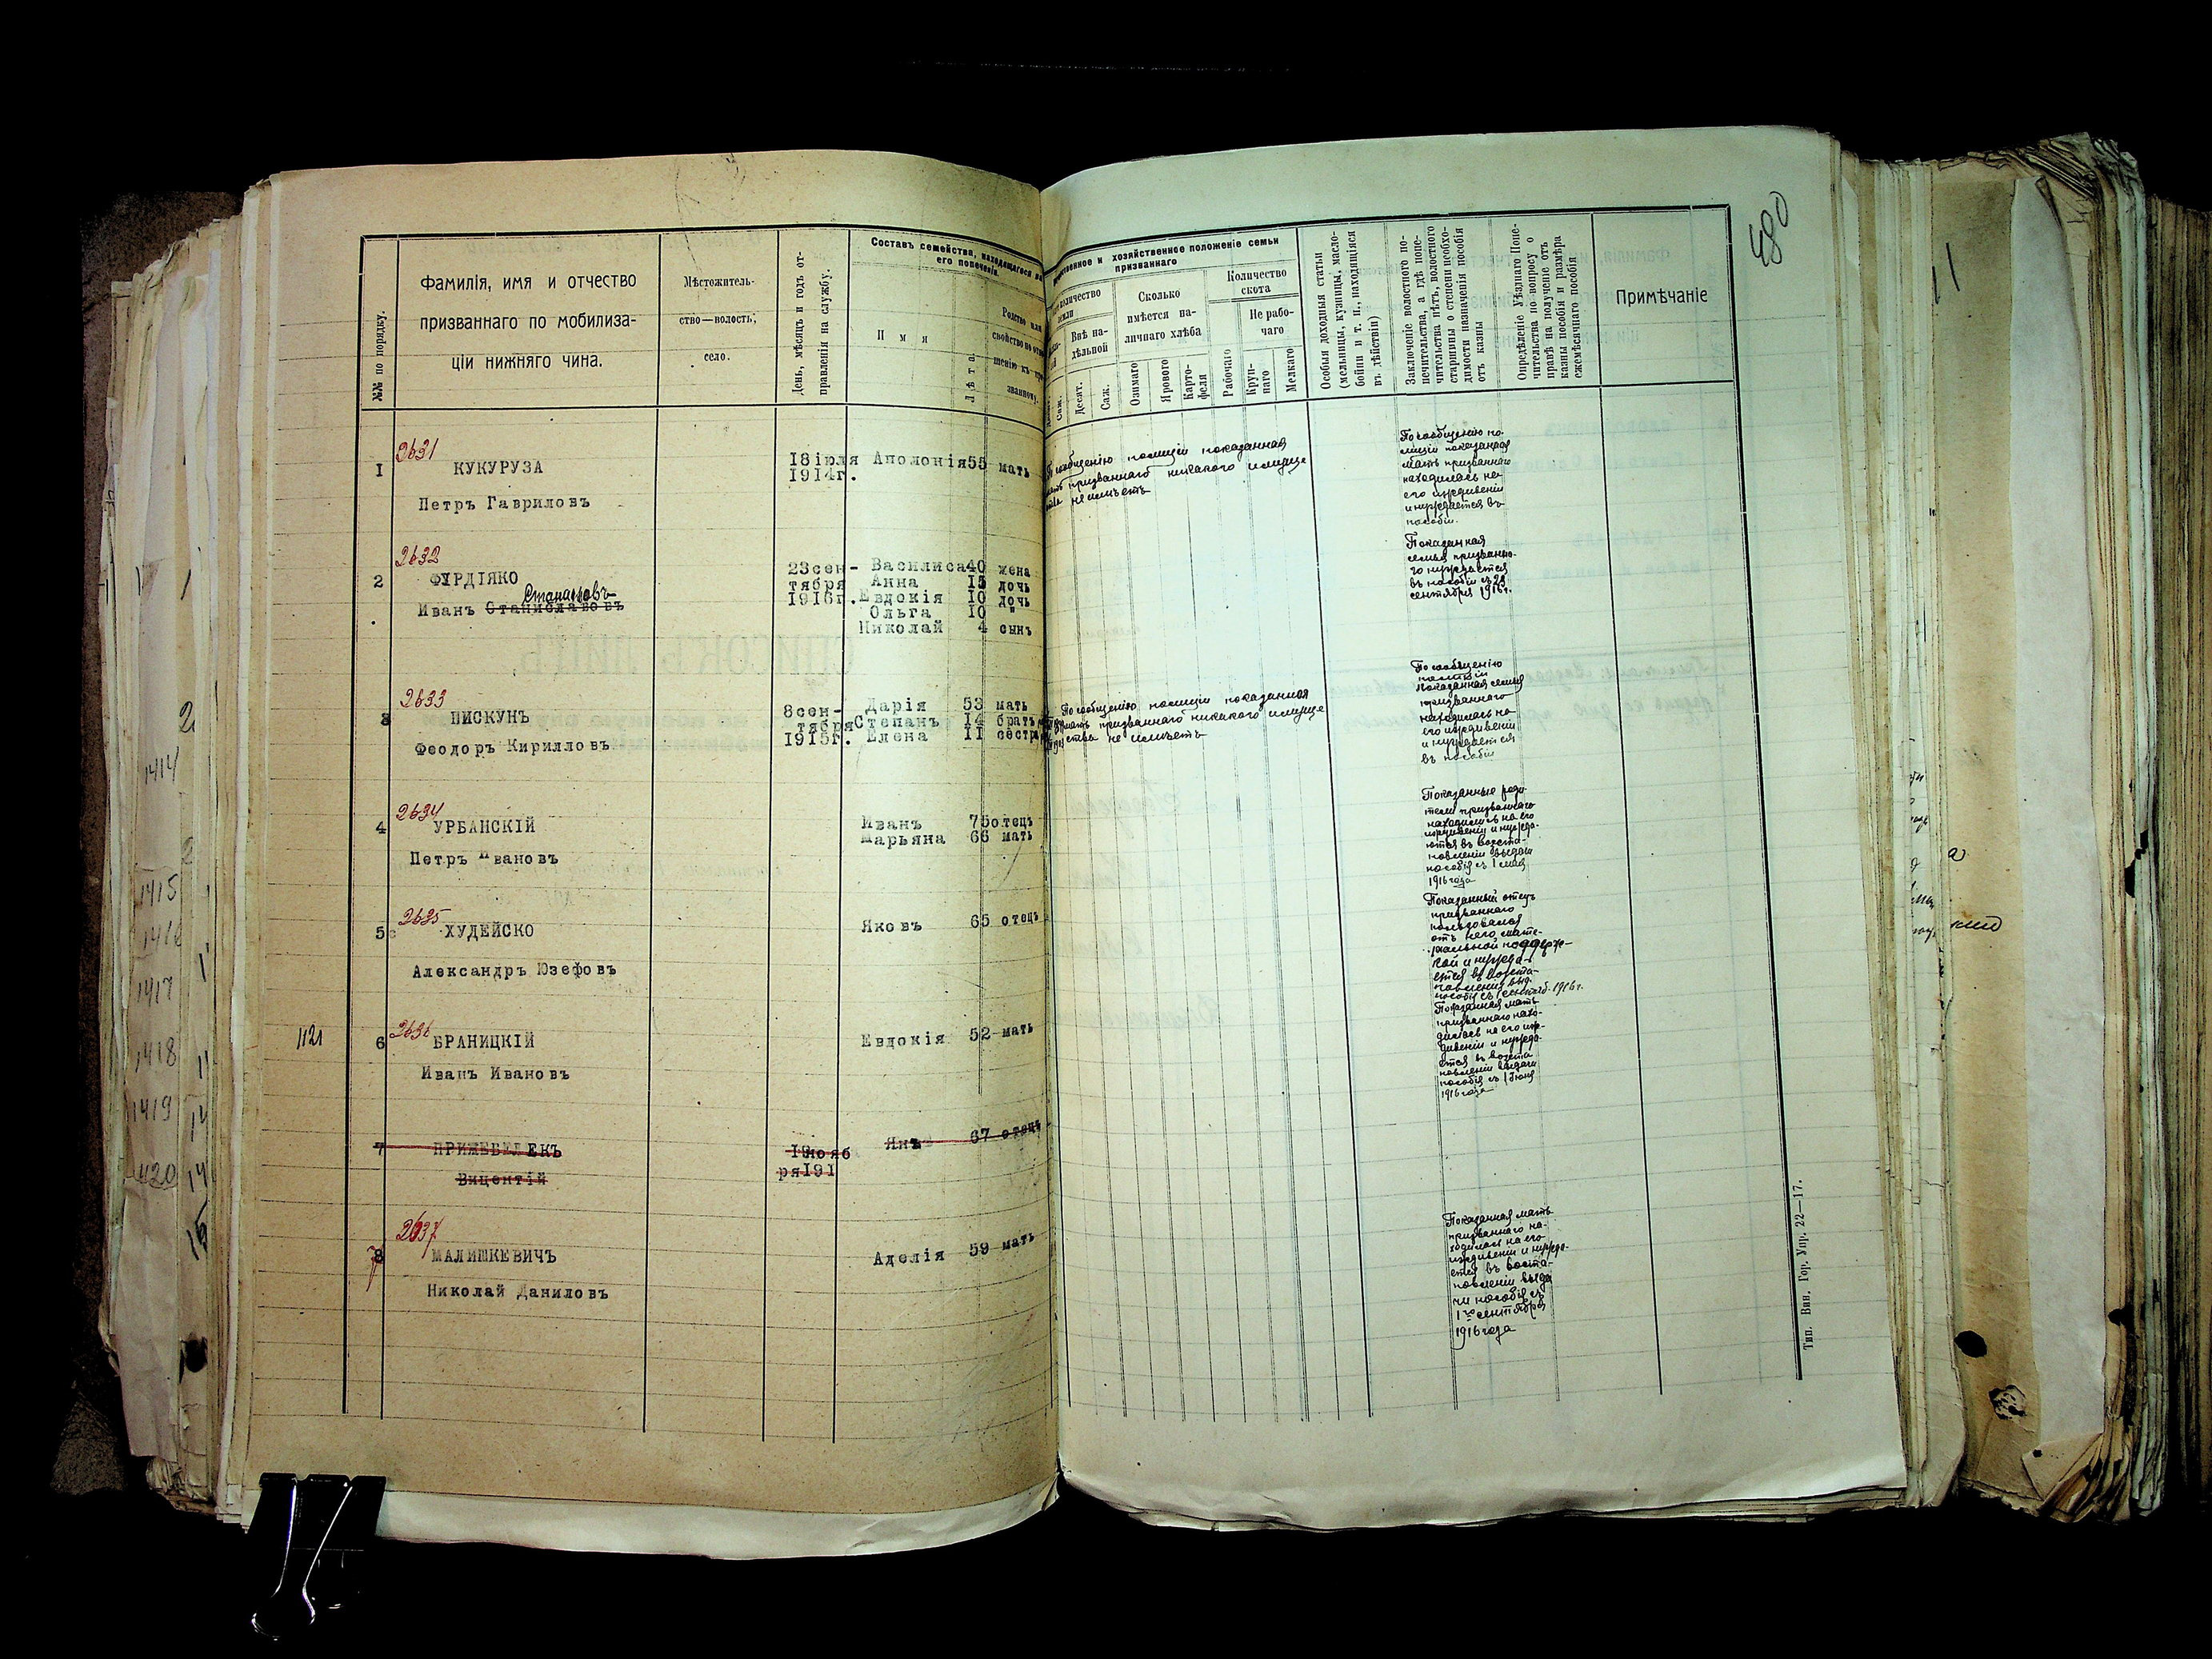 480
Фамилія, имя и отчество
призваннаго по мобилиза-
ціи нижняго чина.
№№ по порядку.
Мѣстожитель-
ство—волость,
село.
День, мѣсяцъ и годъ от-
правленія на службу.
Составъ семейства, находящагося на
его попеченіи.
Имя
Лѣта
Родство или
свойство по отно-
шенію къ при-
званному.
и хозяйственное положеніе семьи
призваннаго
количество
земли
Внѣ на-
дѣльной
Десят.
Саж.
Сколько
имѣется на-
личнаго хлѣба
Озимаго
Ярового
Карто-
феля
Количество
скота
Рабочаго
Не рабо-
чаго
Круп-
наго
Мелкаго
Особыя доходныя статьи
(мельницы, кузницы, масло-
бойни и т. п., находящіяся
въ дѣйствіи)
Заключеніе волостного по-
печительства, а гдѣ попе-
чительства нѣтъ, волостного
старшины о степени необхо-
димости назначенія пособія
отъ казны
Опредѣленіе Уѣзднаго Попе-
чительства по вопросу о
правѣ на полученіе отъ
казны пособія и размѣра
ежемѣсячнаго пособія
Примѣчаніе
2631
1 КУКУРУЗА
Петръ Гавриловъ
18 іюля
1914г.
Аполонія 55 мать
По сообщенію полиціи показанная
мать призваннаго никакого имуще
ства не имѣетъ
По сообщенію по-
лиціи показанная
мать призваннаго
находилась на
его иждивеніи
и нуждается въ
пособіи.
2632
2 ФУРДІЯКО
Станиславовъ
Иванъ Станиславовъ
23 сен-
тября
1916г.
Василиса 40 жена
Анна 15 дочь
Евдокія 10 дочь
Ольга 10 "
Николай 4 сынъ
Показанная
семья призванна-
го нуждается
въ пособіи съ 23
сентября 1916г.
2633
3 ПИСКУНЪ
Феодоръ Кирилловъ
8 сен-
тября
1915г.
Дарія 53 мать
Степанъ 14 братъ
Елена 11 сестра
По сообщенію полиціи показанная
мать призваннаго никакого имуще
ства не имѣетъ
По сообщенію
полиціи
показанная семья
призваннаго
находилась на
его иждивеніи
и нуждается
въ пособіи
2634
4 УРБАНСКІЙ
Петръ Ивановъ
Иванъ 75 отецъ
Марьяна 66 мать
Показанные роди-
тели призваннаго
находились на его
иждивеніи и нужда-
ются въ возста-
новленіи выдачи
пособія съ 1 мая
1916 года
2635
5 ХУДЕЙСКО
Александръ Юзефовъ
Яковъ 65 отецъ
Показанный отецъ
призваннаго
пользовался
отъ него мате-
ріальной поддерж-
кой и нужда-
ется въ возста-
новленіи выд.
пособія съ 1 сентяб. 1916г.
1121
2636
6 БРАНИЦКІЙ
Иванъ Ивановъ
Евдокія 52 мать
Показанная мать
призваннаго нахо-
дилась на его иж-
дивеніи и нужда-
ется въ возста-
новленіи выдачи
пособія съ 1 Іюня
1916 года
7 ПРИЖЕБЕЛЕКЪ
Вицентій
нояб
ря 191
Янъ 67 отецъ
2637
8 МАЛИШКЕВИЧЪ
Николай Даниловъ
Аделія 59 мать
Показанная мать
призваннаго на-
ходилась на его
иждивеніи и нужда-
ется въ воста-
новленіи выда
чи пособія съ
1го сентября
1916 года
Тип. Вин. Гор. Упр. 22—17.
1414
1415
1416
1417
1418
1419
1420